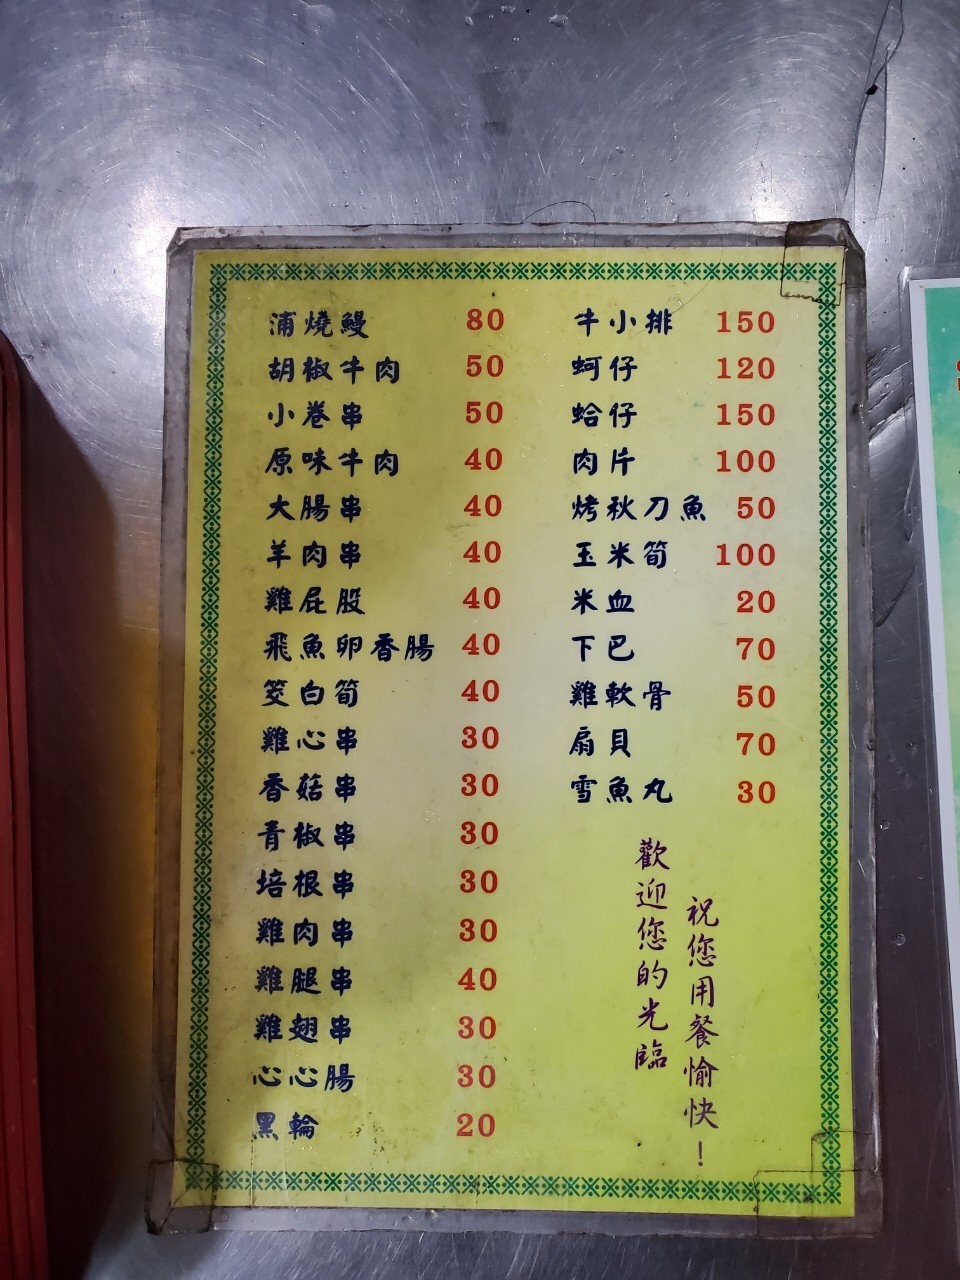 浦燒鰻 80
胡椒牛肉 50
小卷串 50
原味牛肉 40
大腸串 40
羊肉串 40
雞屁股 40
飛魚卵香腸 40
筊白筍 40
雞心串 30
香菇串 30
青椒串 30
培根串 30
雞肉串 30
雞腿串 40
雞翅串 30
心心腸 30
黑輪 20
牛小排 150
蚵仔 120
蛤仔 150
肉片 100
烤秋刀魚 50
玉米筍 100
米血 20
下巴 70
雞軟骨 50
扇貝 70
雪魚丸 30
歡迎您的光臨
祝您用餐愉快！